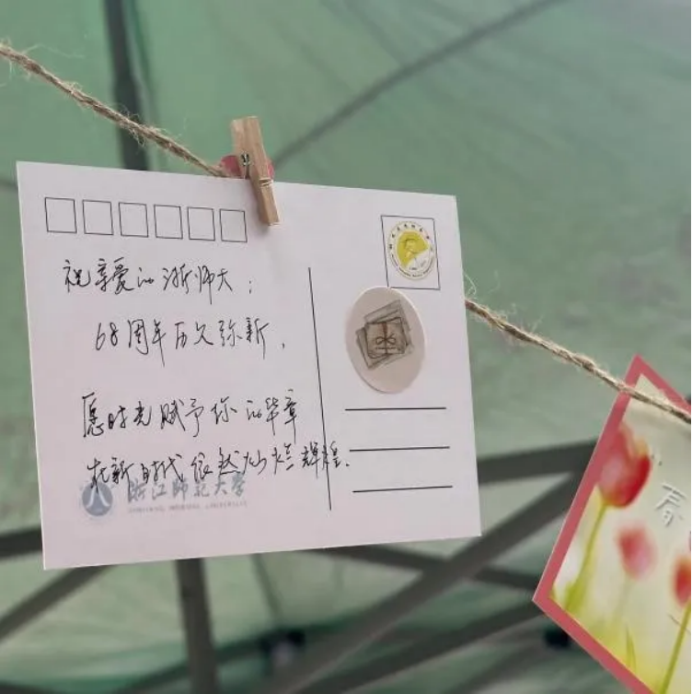 祝亲爱的浙师大：
68周年历久弥新，
愿时光赋予你的华章
在新时代依然灿烂辉煌．
浙江师范大学
ZHEJIANG NORMAL UNIVERSITY
春